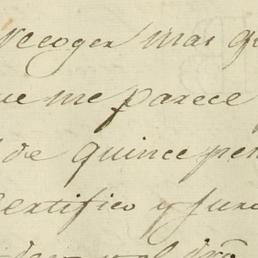 recoger mas q
ue me parece
de quince pe
ertifico y jur